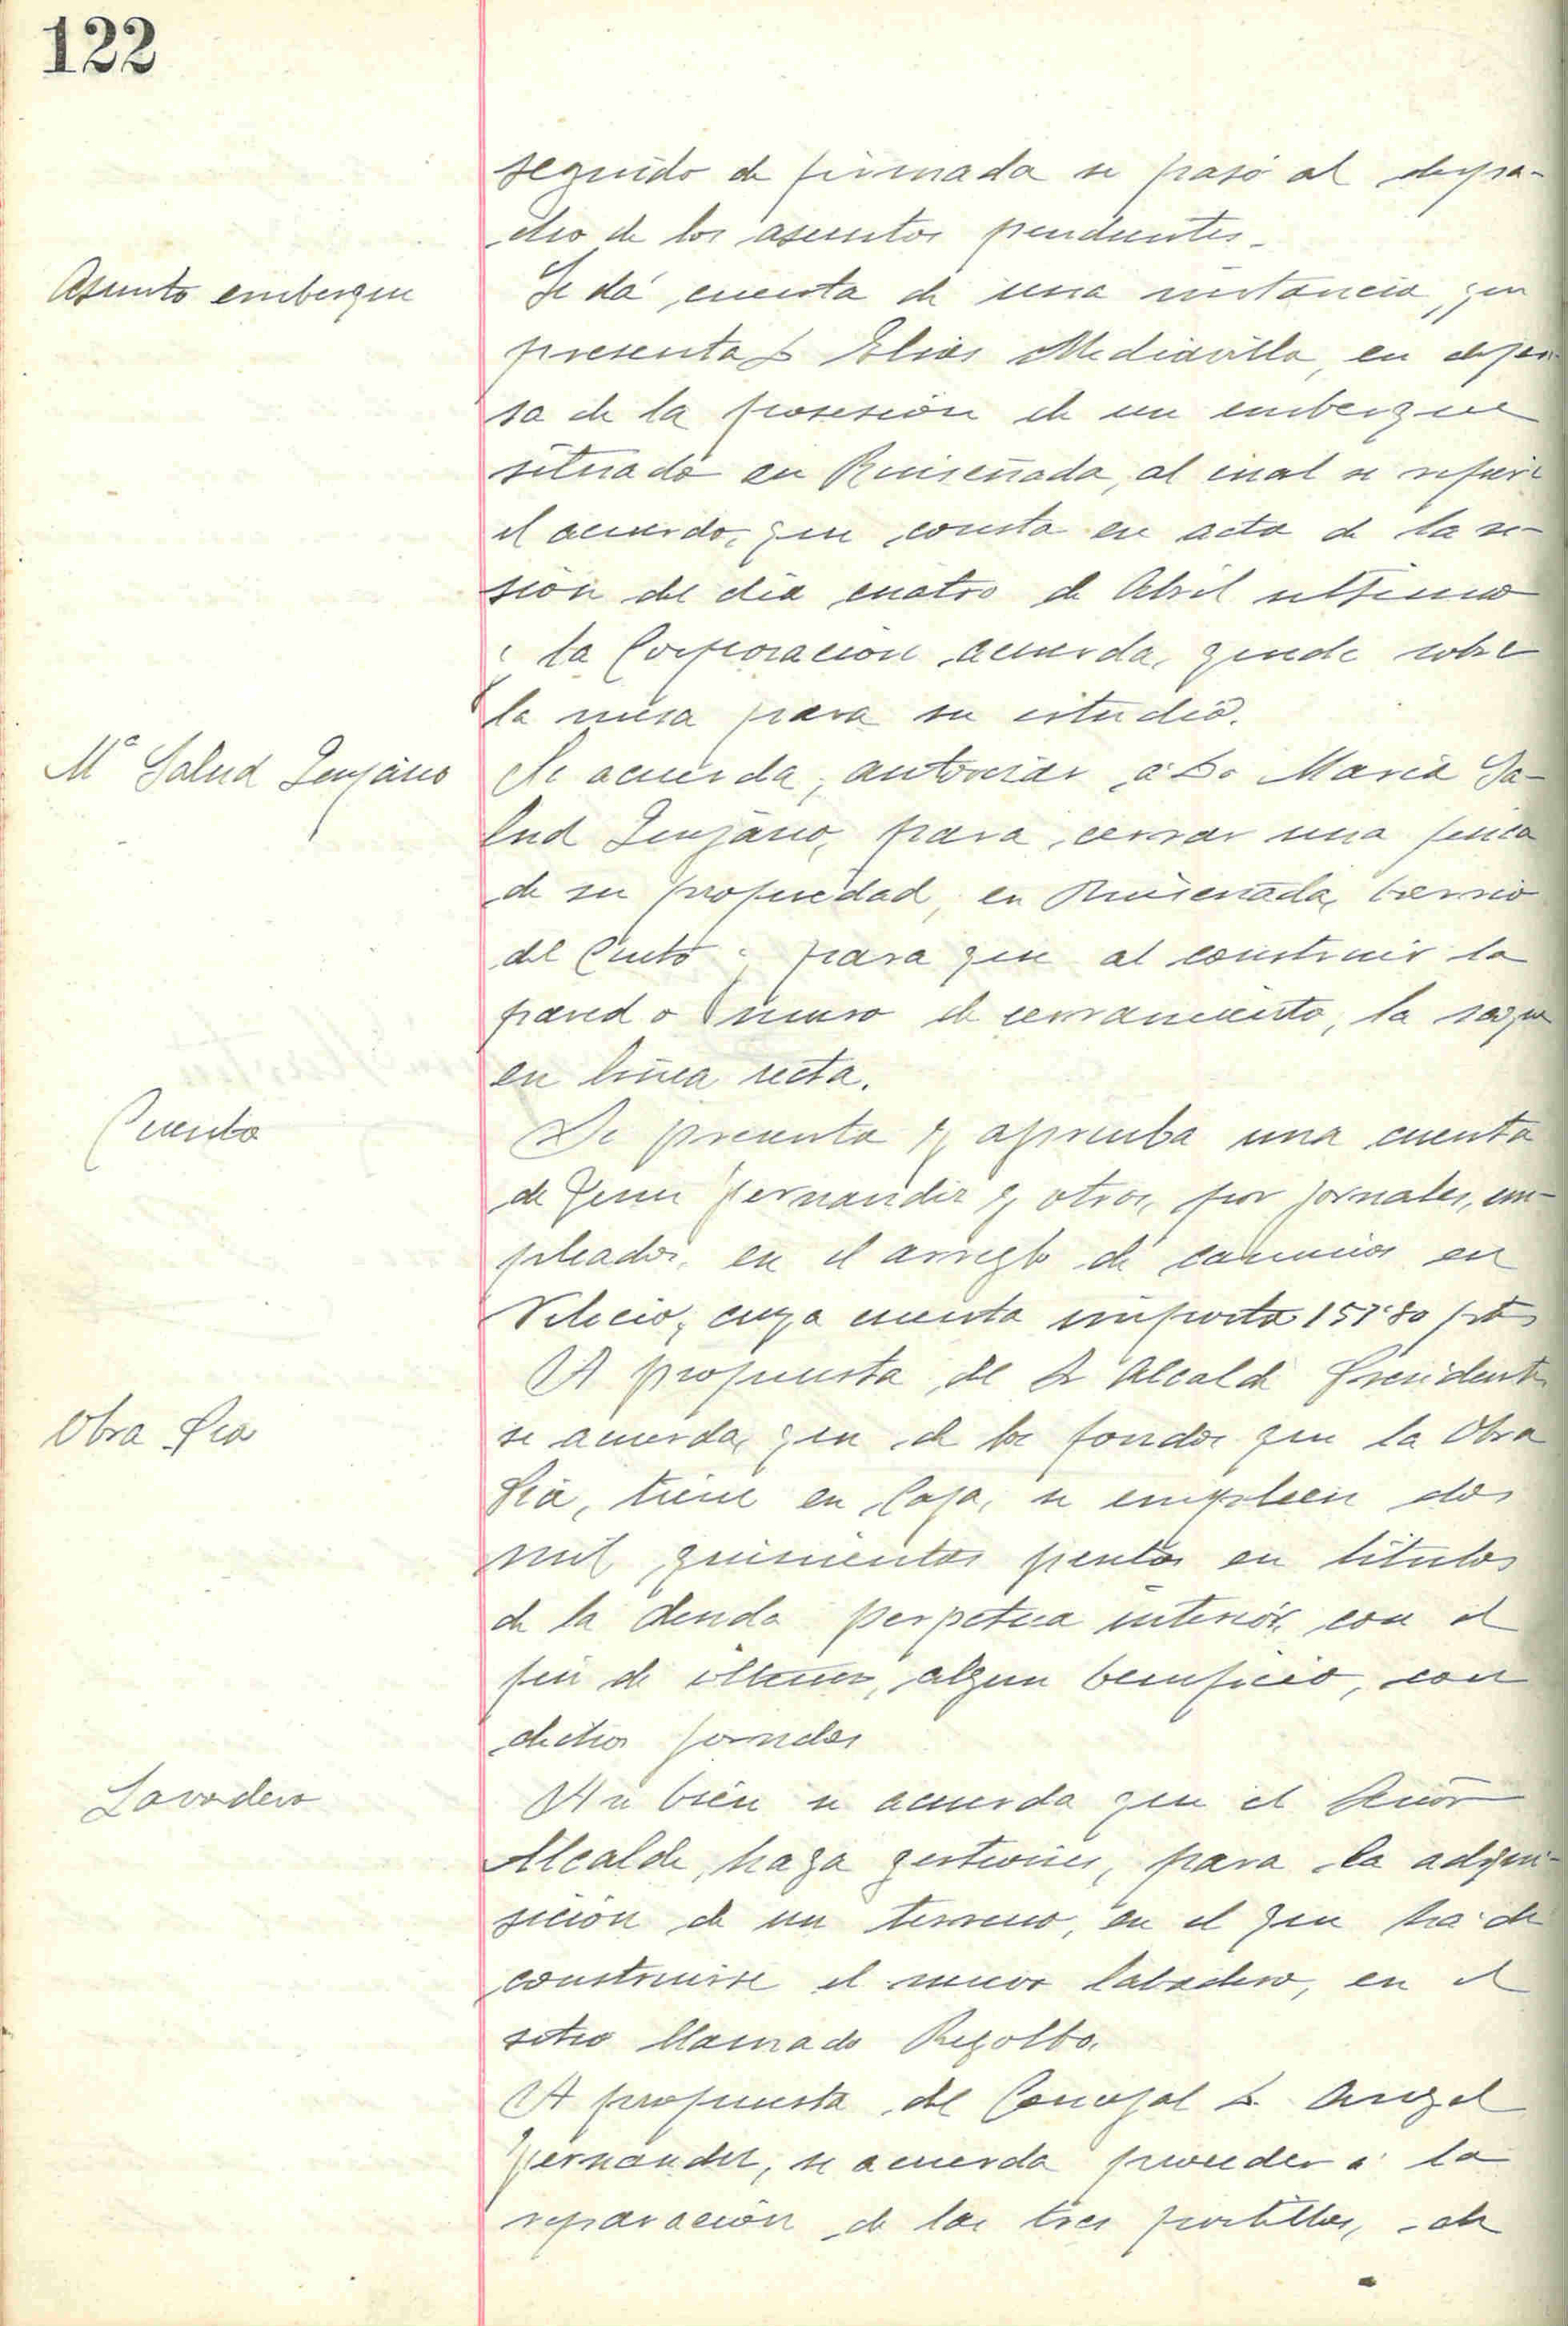 122
seguido de firmada se pasó al despa-
cho de los asuntos pendientes.
Asunto embergue
Se dá cuenta de una instancia, que
presenta D Elias Mediavilla, en defen-
sa de la posesión de un embergue
situado en Ruiseñada, al cual se refiere
el acuerdo, que consta en acta de la se-
sión del día cuatro de Abril ultimo
y la Corporacion acuerda, quede sobre
la mesa para su estudio.
Mª Salud
Se acuerda, autorizar á Dª María Sa-
lud para cerrar una finca
de su propiedad, en Ruiseñada, barrio
del Cueto y para que al construir la
pared o muro de cerramiento, la saque
en línea recta.
Cuenta
Se presenta y aprueba una cuenta
de Jesus Fernandez y otros, por jornales, em-
pleados, en el arreglo de caminos en
Velecio, cuya cuenta importa pts
Obra Pia
A propuesta del Sr Alcalde Presidente
se acuerda, que de los fondos que la Obra
Pía, tiene en Caja, se empleen dos
mil quinientas pesetas en titulos
de la deuda perpetua interior, con el
fin de obtener, algun beneficio, con
dichos fondos
Lavadero
Asi bién se acuerda que el Señor
Alcalde, haga gestiones, para la adqui-
sición de un terreno, en el que ha de
construirse el nuevo labadero, en el
sitio llamado Regolbo.
A propuesta del Concejal D. Angel
Fernandez, se acuerda proceder á la
reparación de los tres portillos, de